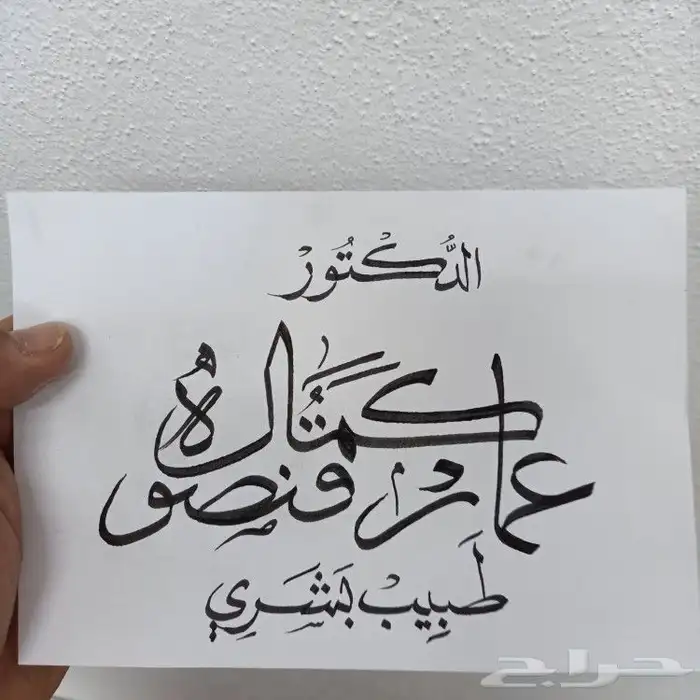 الدُّكْتُورْ
عمار كمال قنصوه
طَبِيبْ بَشَرِي
حراج